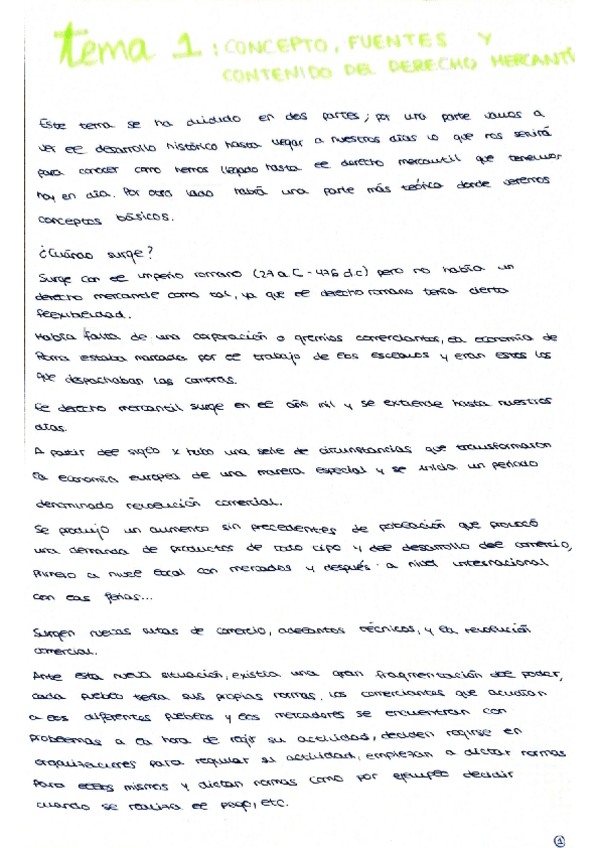 tema 1: CONCEPTO, FUENTES Y
CONTENIDO DEL DERECHO MERCANTI
Este tema se ha dividido en dos partes; por una parte vamos a
ver el desarrollo histórico hasta llegar a nuestros días lo que nos servirá
para conocer como hemos llegado hasta el derecho mercantil que tenemos
hoy en día. Por otro lado habrá una parte más teórica donde veremos
conceptos básicos.
¿Cuándo surge?
Surge con el imperio romano (27 a.C - 476 d.c) pero no había un
derecho mercantil como tal, ya que el derecho romano tenía cierta
flexibilidad.
Había falta de una corporación o gremios comerciantes, la economía de
Roma estaba marcada por el trabajo de los esclavos y eran estos los
que despachaban las compras.
El derecho mercantil surge en el año mil y se extiende hasta nuestros
días.
A partir del siglo X hubo una serie de circunstancias que transformaron
la economía europea de una manera especial y se inicia un periodo
denominado revolución comercial.
Se produjo un aumento sin precedentes de población que provocó
una demanda de productos de todo tipo y del desarrollo del comercio,
primero a nivel local con mercados y después a nivel internacional
con las ferias...
Surgen nuevas rutas de comercio, adelantos técnicos, y la revolución
comercial.
Ante esta nueva situación, existía una gran fragmentación del poder,
cada pueblo tenía sus propias normas. Los comerciantes que acudían
a los diferentes pueblos y los mercadores se encuentran con
problemas a la hora de regir su actividad, deciden regirse en
organizaciones para regular su actividad, empiezan a dictar normas
para ellos mismos y dictan normas como por ejemplo decidir
cuando se realiza el pago, etc.
1